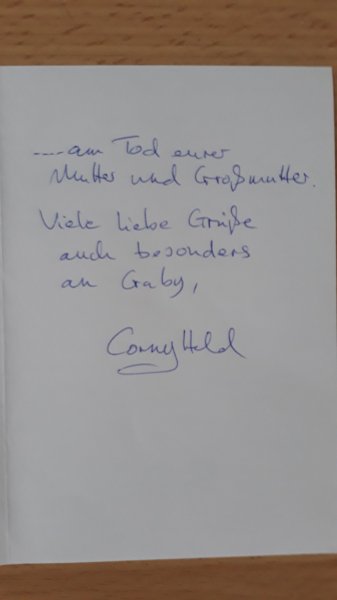 ....am Tod eurer
Mutter und Großmutter.
Viele liebe Grüße
auch besonders
an Gaby,
Corny Held